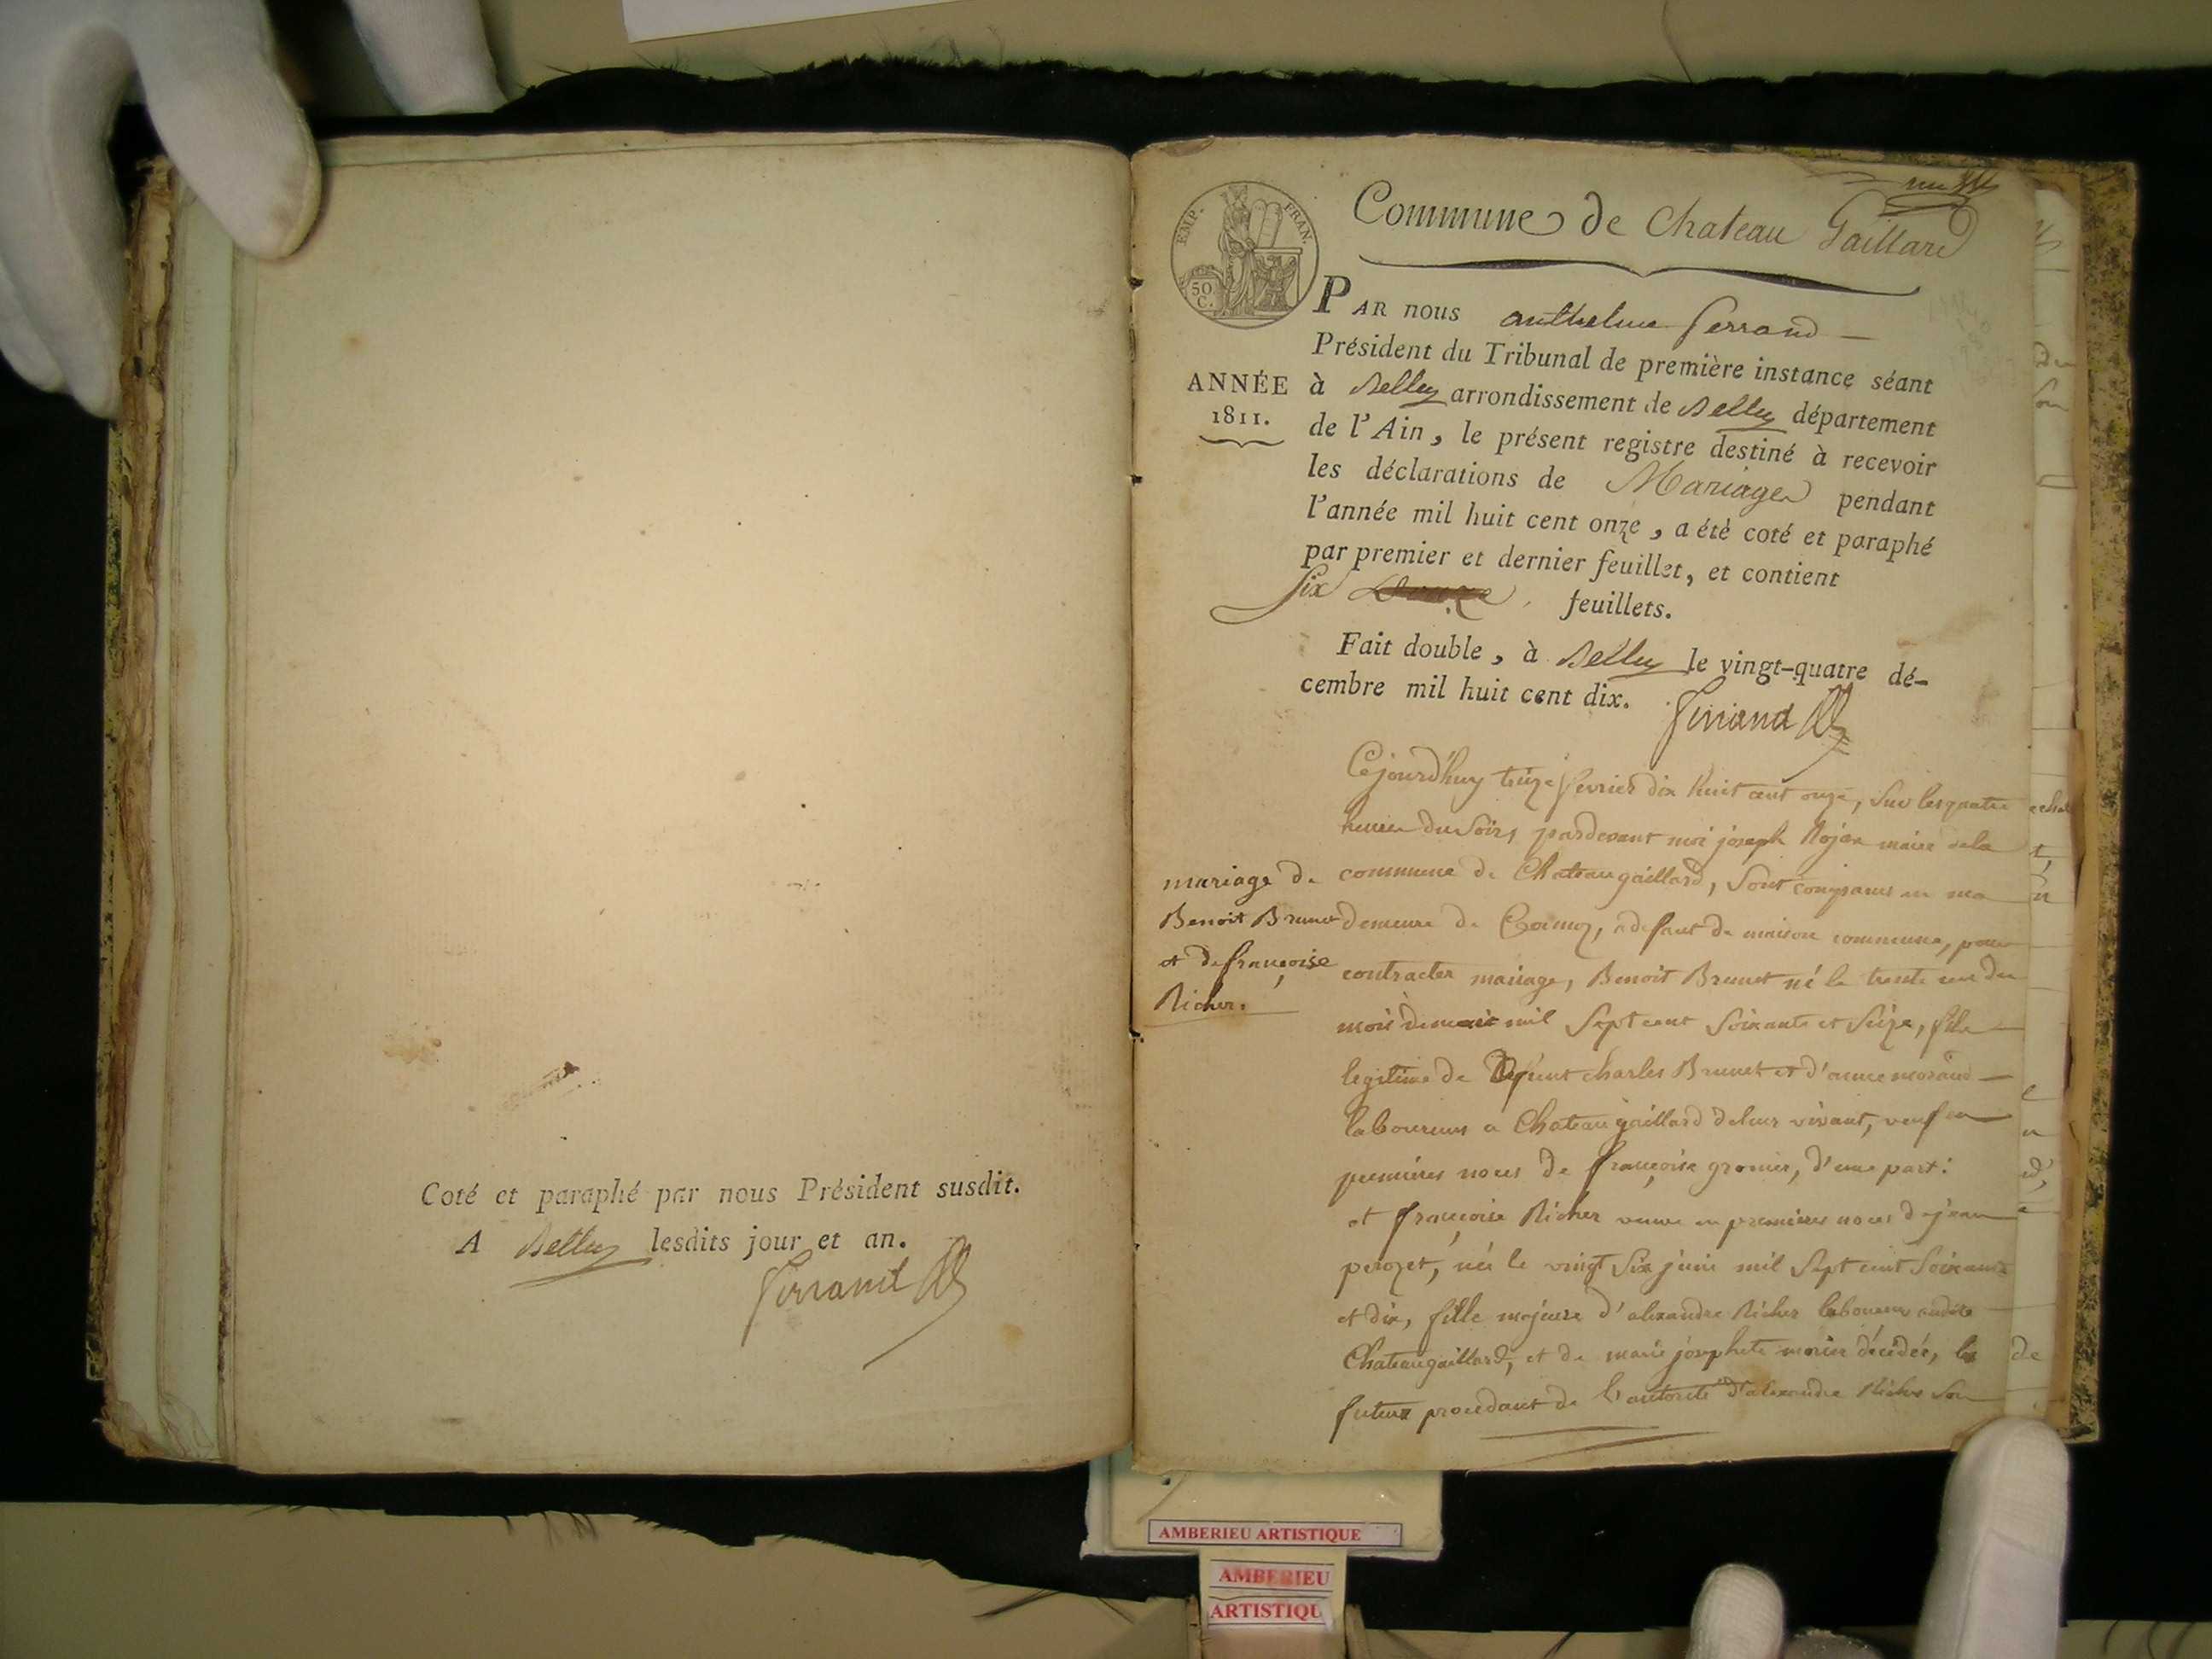 Coté et paraphé par nous Président susdit.
A Belley lesdits jour et an.
Ferrand
EMP. FRAN.
50 C.
Commune de Chateau Gaillard
PAR nous anthelme ferrand
Président du Tribunal de première instance séant
ANNÉE 1811.
à Belley arrondissement de Belley département
de l'Ain, le présent registre destiné à recevoir
les déclarations de Mariages pendant
l'année mil huit cent onze, a été coté et paraphé
par premier et dernier feuillet, et contient
Six feuillets.
Fait double, à Belley le vingt-quatre dé-
cembre mil huit cent dix.
Ferrand
mariage de
Benoit Brunet
et de françoise
Richer.
Cejourd'huy treize fevrier dix huit cent onze, sur les quatre
heures du soirs, pardevant moi joseph maire de la
commune de Chateaugaillard, sont comparus en ma
demeure de Cormoz, a defaut de maison commune, pour
contracter mariage, Benoit Brunet né le trente un du
mois de mil sept cent soixante et seize, fils
legitime de Defunt charles Brunet et d'anne morand
laboureurs a Chateaugaillard de leur vivant, veuf en
premières noces de françoise gronier, d'une part:
et françoise Richer veuve en premieres noces de jean
perozet, née le vingt six juin mil sept cent soixante
et dix, fille majeure d'alexandre Richer laboureur audit
Chateaugaillard, et de marie josephte morier décédée, les
futurs procedant de l'autorité d'alexandre Richer son
AMBERIEU ARTISTIQUE
AMBERIEU
ARTISTIQU